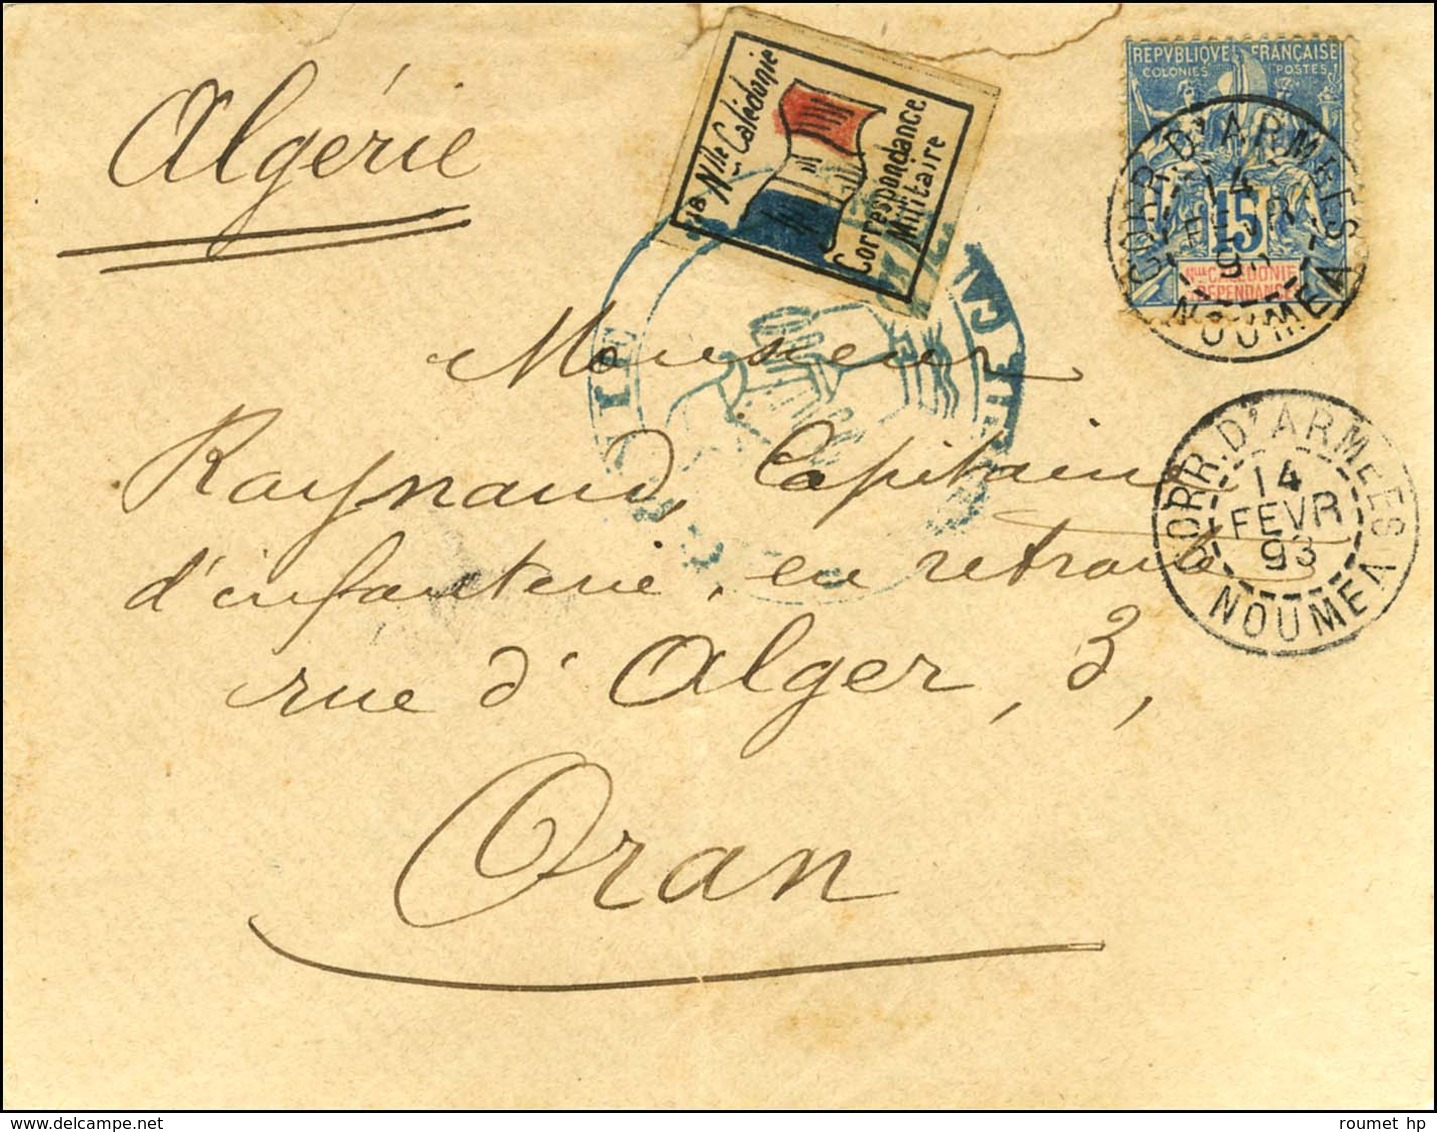 Algérie
Nlle Calédonie
Correspondance
Militaire
REPVBLIQVE FRANÇAISE
COLONIES POSTES
15
Nlle CALEDONIE
DEPENDANCES
CORR. D'ARMEES
14
FEVR
93
NOUMEA
CORR. D'ARMEES
14
FEVR
93
NOUMEA
Monsieur
Raynaud, Capitaine
d'infanterie, en retraite
rue d'Alger, 3,
Oran
roumet hp